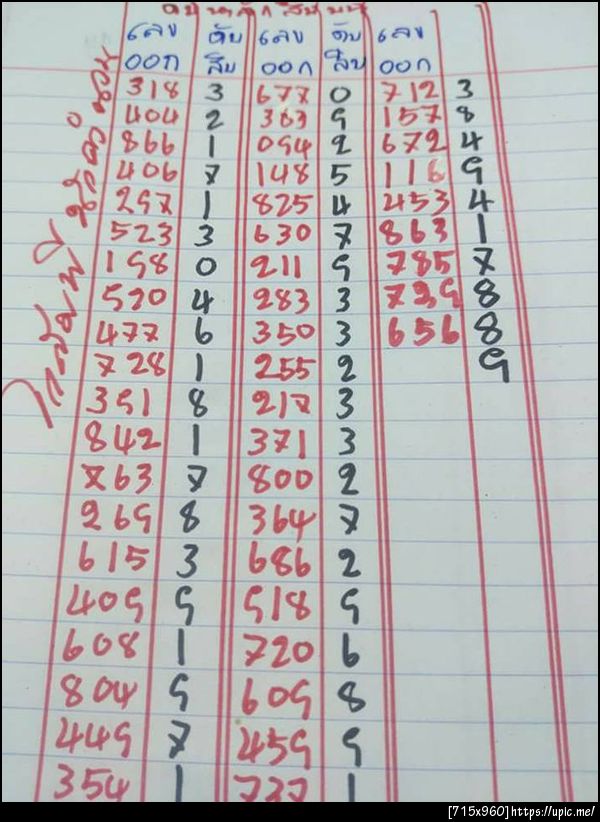 ดับหลักสิบบน
เลข ดับ เลข ดับ เลข
ออก สิบ ออก สิบ ออก
318 3 677 0 712 3
404 2 363 9 157 8
866 1 094 2 672 4
406 7 148 5 116 9
297 1 825 4 453 4
523 3 630 7 863 1
198 0 211 9 785 7
520 4 283 3 739 8
477 6 350 3 656 8
728 1 255 2 9
391 8 217 3
842 1 371 3
763 7 800 2
269 8 364 7
615 3 686 2
409 9 918 9
608 1 720 6
804 9 609 8
449 7 459 9
354 1 737 1
[715x960]https://upic.me/